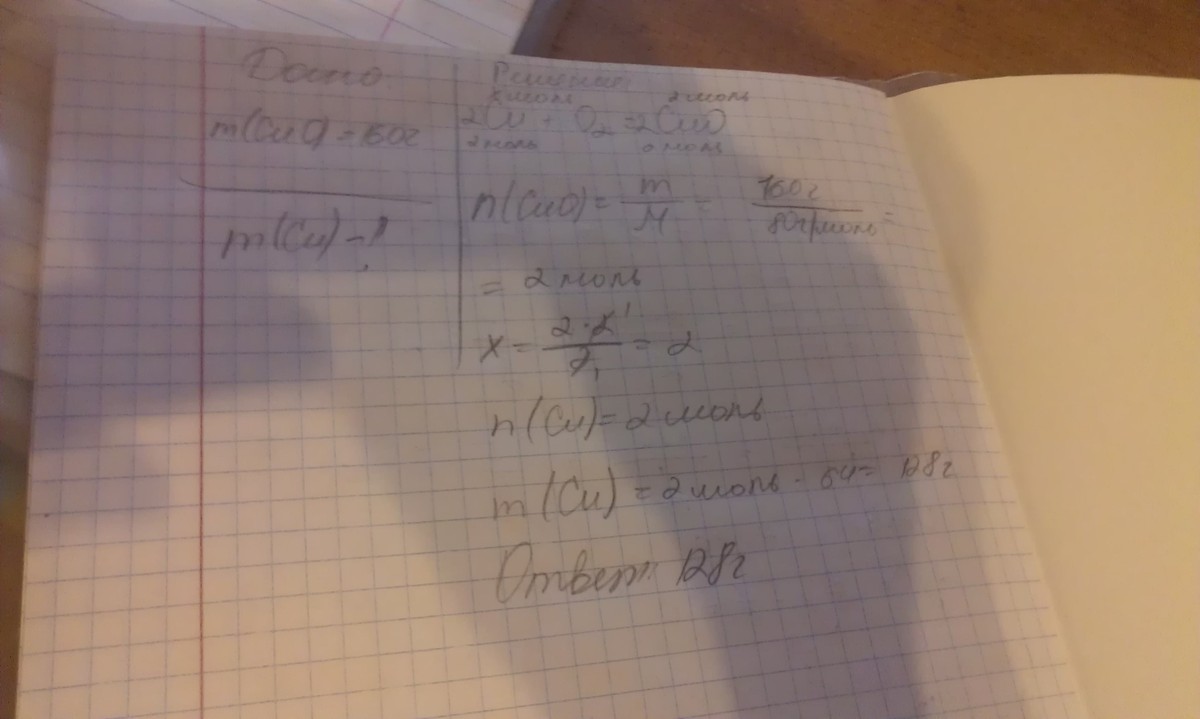 Дано
m(CuO) = 160г
m(Cu) - ?
Решение
x моль 2 моль
2Cu + O₂ = 2CuO
2 моль 2 моль
n(CuO) = m/M = 160г/80г/моль =
= 2 моль
x = 2·2/2 = 2
n(Cu) = 2 моль
m(Cu) = 2 моль · 64 = 128г
Ответ: 128г